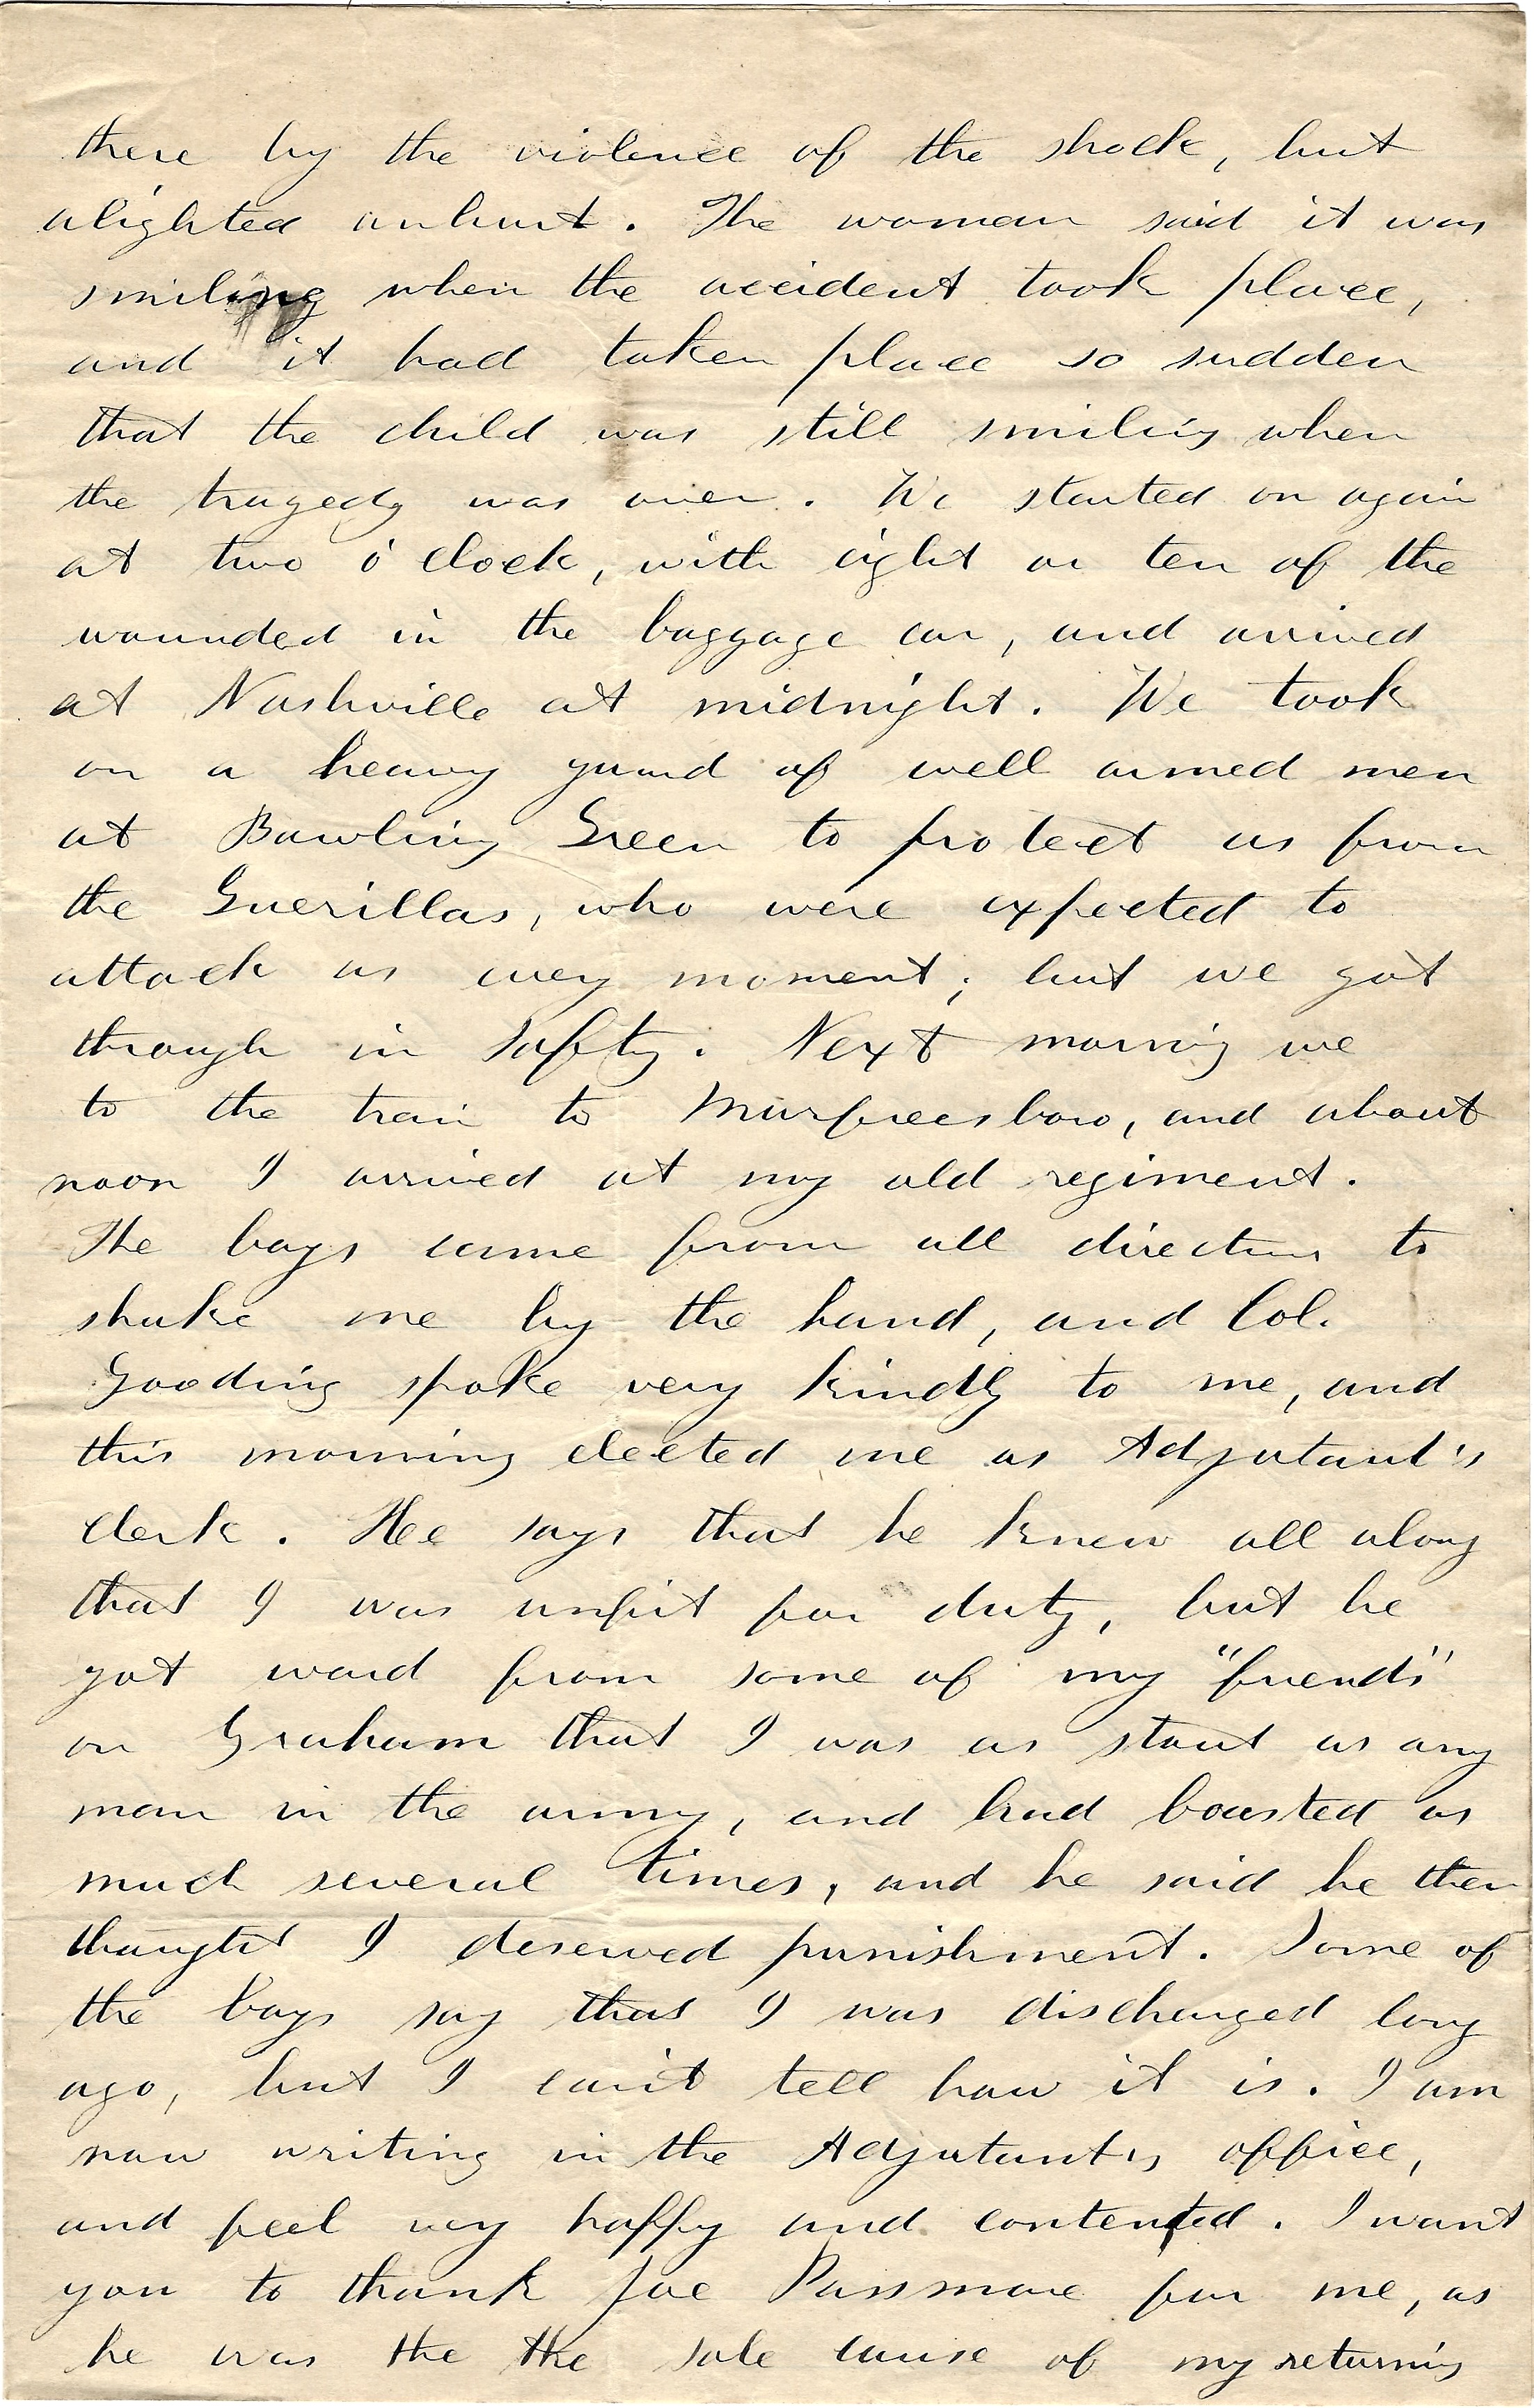 there by the violence of the shock, but
alighted unhurt. The woman said it was
smiling when the accident took place,
and it had taken place so sudden
that the child was still smiling when
the tragedy was over. We started on again
at two o'clock, with eight or ten of the
wounded in the baggage car, and arrived
at Nashville at midnight. We took
on a heavy guard of well armed men
at Bowling Green to protect us from
the Guerillas, who were expected to
attack us every moment; but we got
through in safty. Next morning we
to the train to Murfreesboro, and about
noon I arrived at my old regiment.
The boys came from all directions to
shake me by the hand, and Col.
Gooding spoke very kindly to me, and
this morning elected me as Adjutant's
clerk. Hee says that he knew all along
that I was unfit for duty, but he
got word from some of my "friends"
on Graham that I was as stout as any
man in the army, and had boasted as
much several times, and he said he then
thought I deserved punishment. Some of
the boys say that I was discharged long
ago, but I can't tell how it is. I am
now writing in the Adjutant's office,
and feel very happy and contented. I want
you to thank Joe Passmore for me, as
he was the the sole cause of my returning